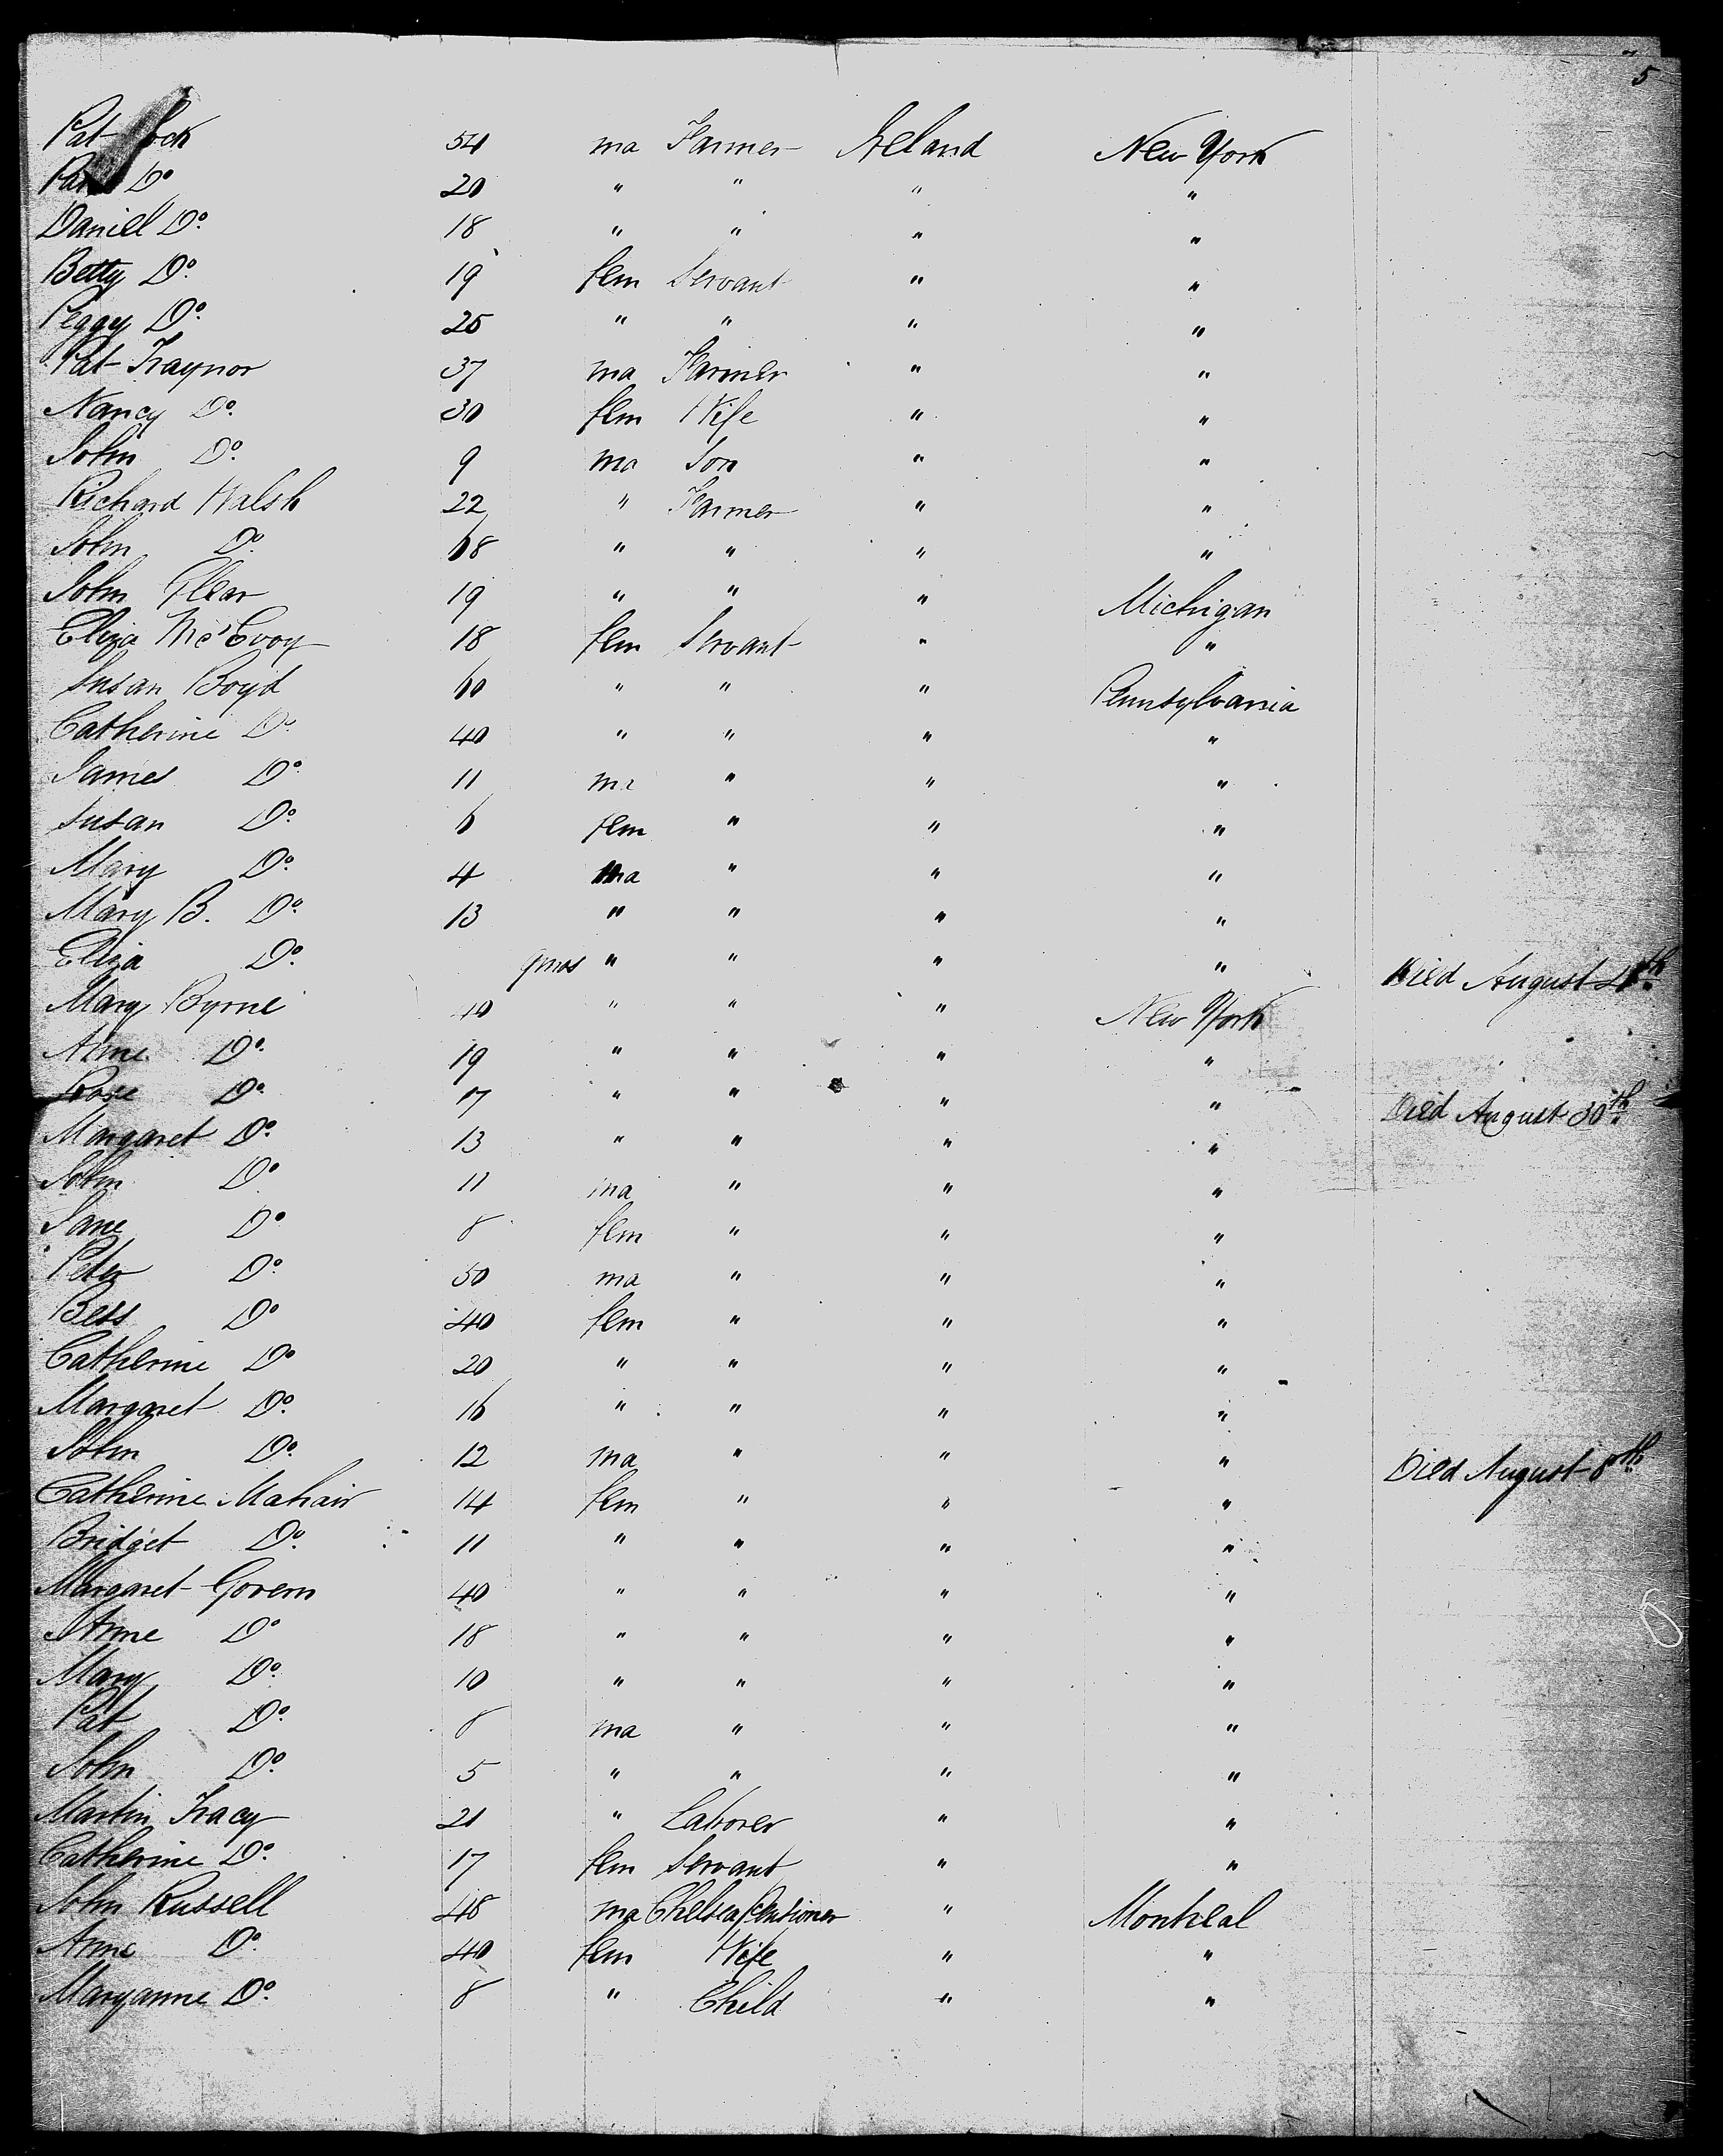 5
Pat 54 ma Farmer Ireland New York
Do 20 " " " "
Daniel Do. 18 " " " "
Betty Do. 19 fem Servant " "
Peggy Do. 25 " " " "
Pat Traynor 37 ma Farmer " "
Nancy Do. 30 fem Wife " "
John Do. 9 ma Son " "
Richard Walsh 22 " Farmer " "
John Do. 68 " " " "
John 19 " " " Michigan
Eliza McEvoy 18 fem Servant " "
Susan Boyd 60 " " " Pennsylvania
Catherine Do. 40 " " " "
James Do. 11 ma " " "
Susan Do. 6 fem " " "
Mary Do. 4 ma " " "
Mary B. Do. 13 " " " "
Eliza Do. 9mos " " " " Died August
Mary Byrne 40 " " " New York
Anne Do. 19 " " " "
Rose Do. 17 " " " " Died August 30th
Margaret Do. 13 " " " "
John Do 11 ma " " "
Jane Do 8 fem " " "
Peter Do. 50 ma " " "
Bess Do 40 fem " " "
Catherine Do 20 " " " "
Margaret Do. 16 " " " "
John Do. 12 ma " " " Died August 8th
Catherine Mahair 14 fem " " "
Bridget Do. 11 " " " "
Margaret Govern 40 " " " "
Anne Do 18 " " " "
Mary Do. 10 " " " "
Pat Do. 8 ma " " "
John Do. 5 " " " "
Martin Tracy 21 " Laborer " "
Catherine Do. 17 fem Servant " "
John Russell 48 ma Chelsea Pensioner " Montreal
Anne Do. 40 fem Wife " "
Maryanne Do. 8 " Child " "